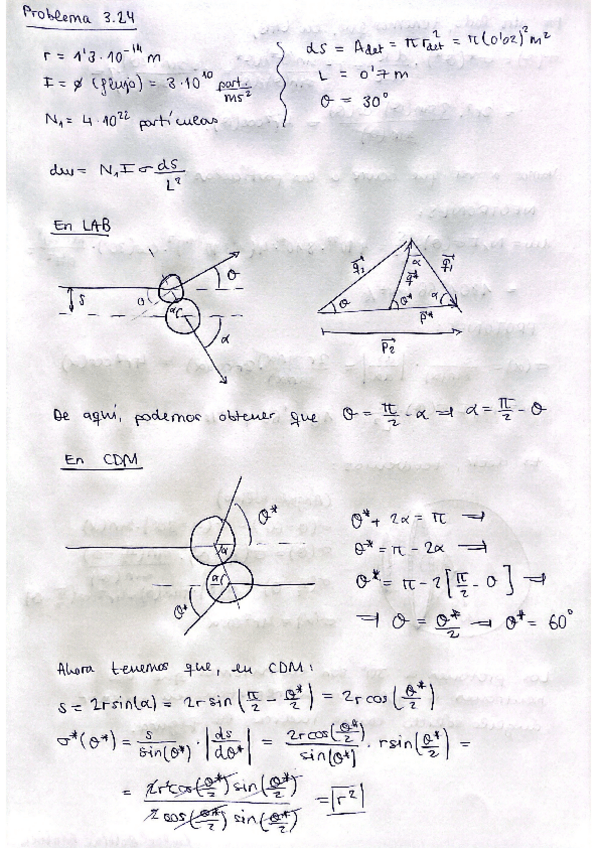 Problema 3.24
r = 1'3·10⁻¹⁴ m
I = ø (flujo) = 3·10¹⁰ part./ms²
N₁ = 4·10²² partículas
ds = Adet = π r²det = π(0'02)² m²
L = 0'7 m
θ = 30°
dω = N₁ I σ ds/L²
En LAB
s θ α α θ
q₂ q* q₁ α θ θ* α p* p₂
De aquí, podemos obtener que θ = π/2 - α ⇒ α = π/2 - θ
En CDM
θ* α α θ*
θ* + 2α = π ⇒
θ* = π - 2α ⇒
θ* = π - 2[π/2 - θ] ⇒
⇒ θ = θ*/2 → θ* = 60°
Ahora tenemos que, en CDM:
s = 2r sin(α) = 2r sin(π/2 - θ*/2) = 2r cos(θ*/2)
σ*(θ*) = s/sin(θ*) · |ds/dθ*| = 2r cos(θ*/2)/sin(θ*) · r sin(θ*/2) =
= 2r² cos(θ*/2) sin(θ*/2) / 2 cos(θ*/2) sin(θ*/2) = r²